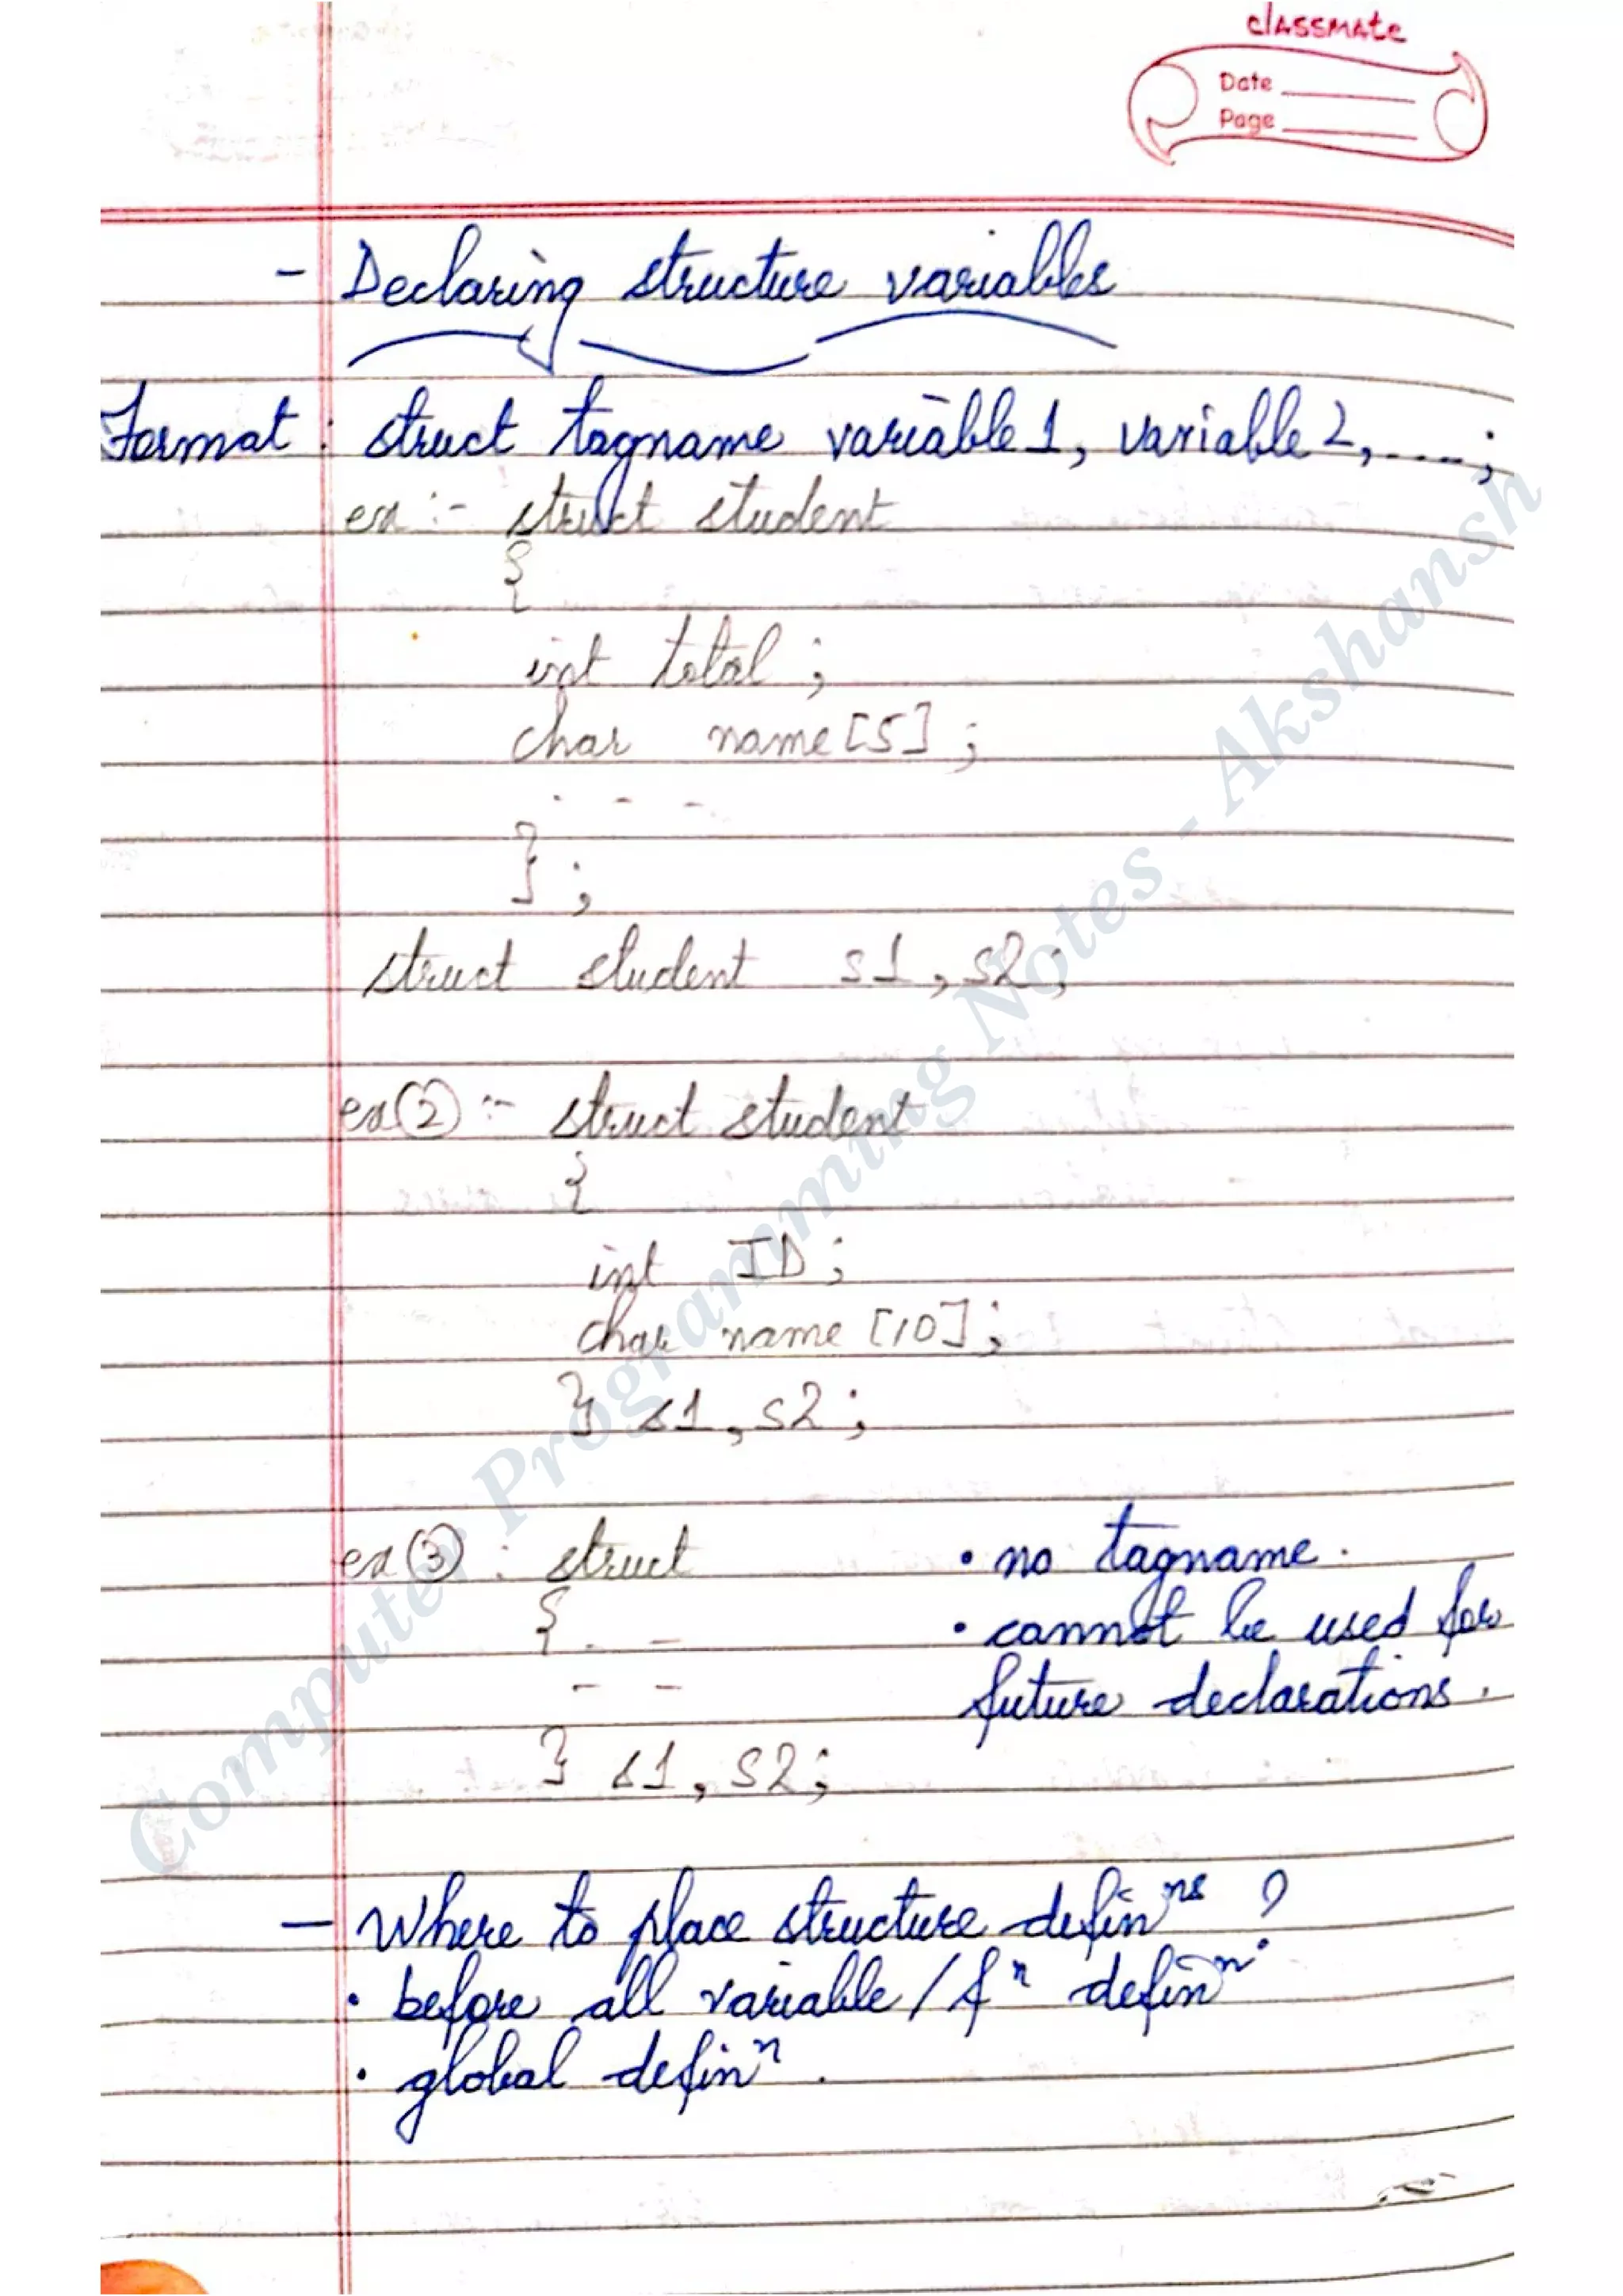 classmate
Date
Page
- Declaring structure variables
Format : struct tagname variable1, variable2, ....;
ex :- struct student
{
int total ;
char name[5] ;
. - -
} ;
struct student s1, s2;
ex ② :- struct student
{
int ID;
char name [10];
} s1, s2;
ex ③ : struct
{ . -
- -
} s1, s2;
• no tagname.
• cannot be used for
future declarations.
- Where to place structure definⁿˢ ?
• before all variable / fⁿ definⁿ.
• global definⁿ.
Computer Programming Notes - Akshansh